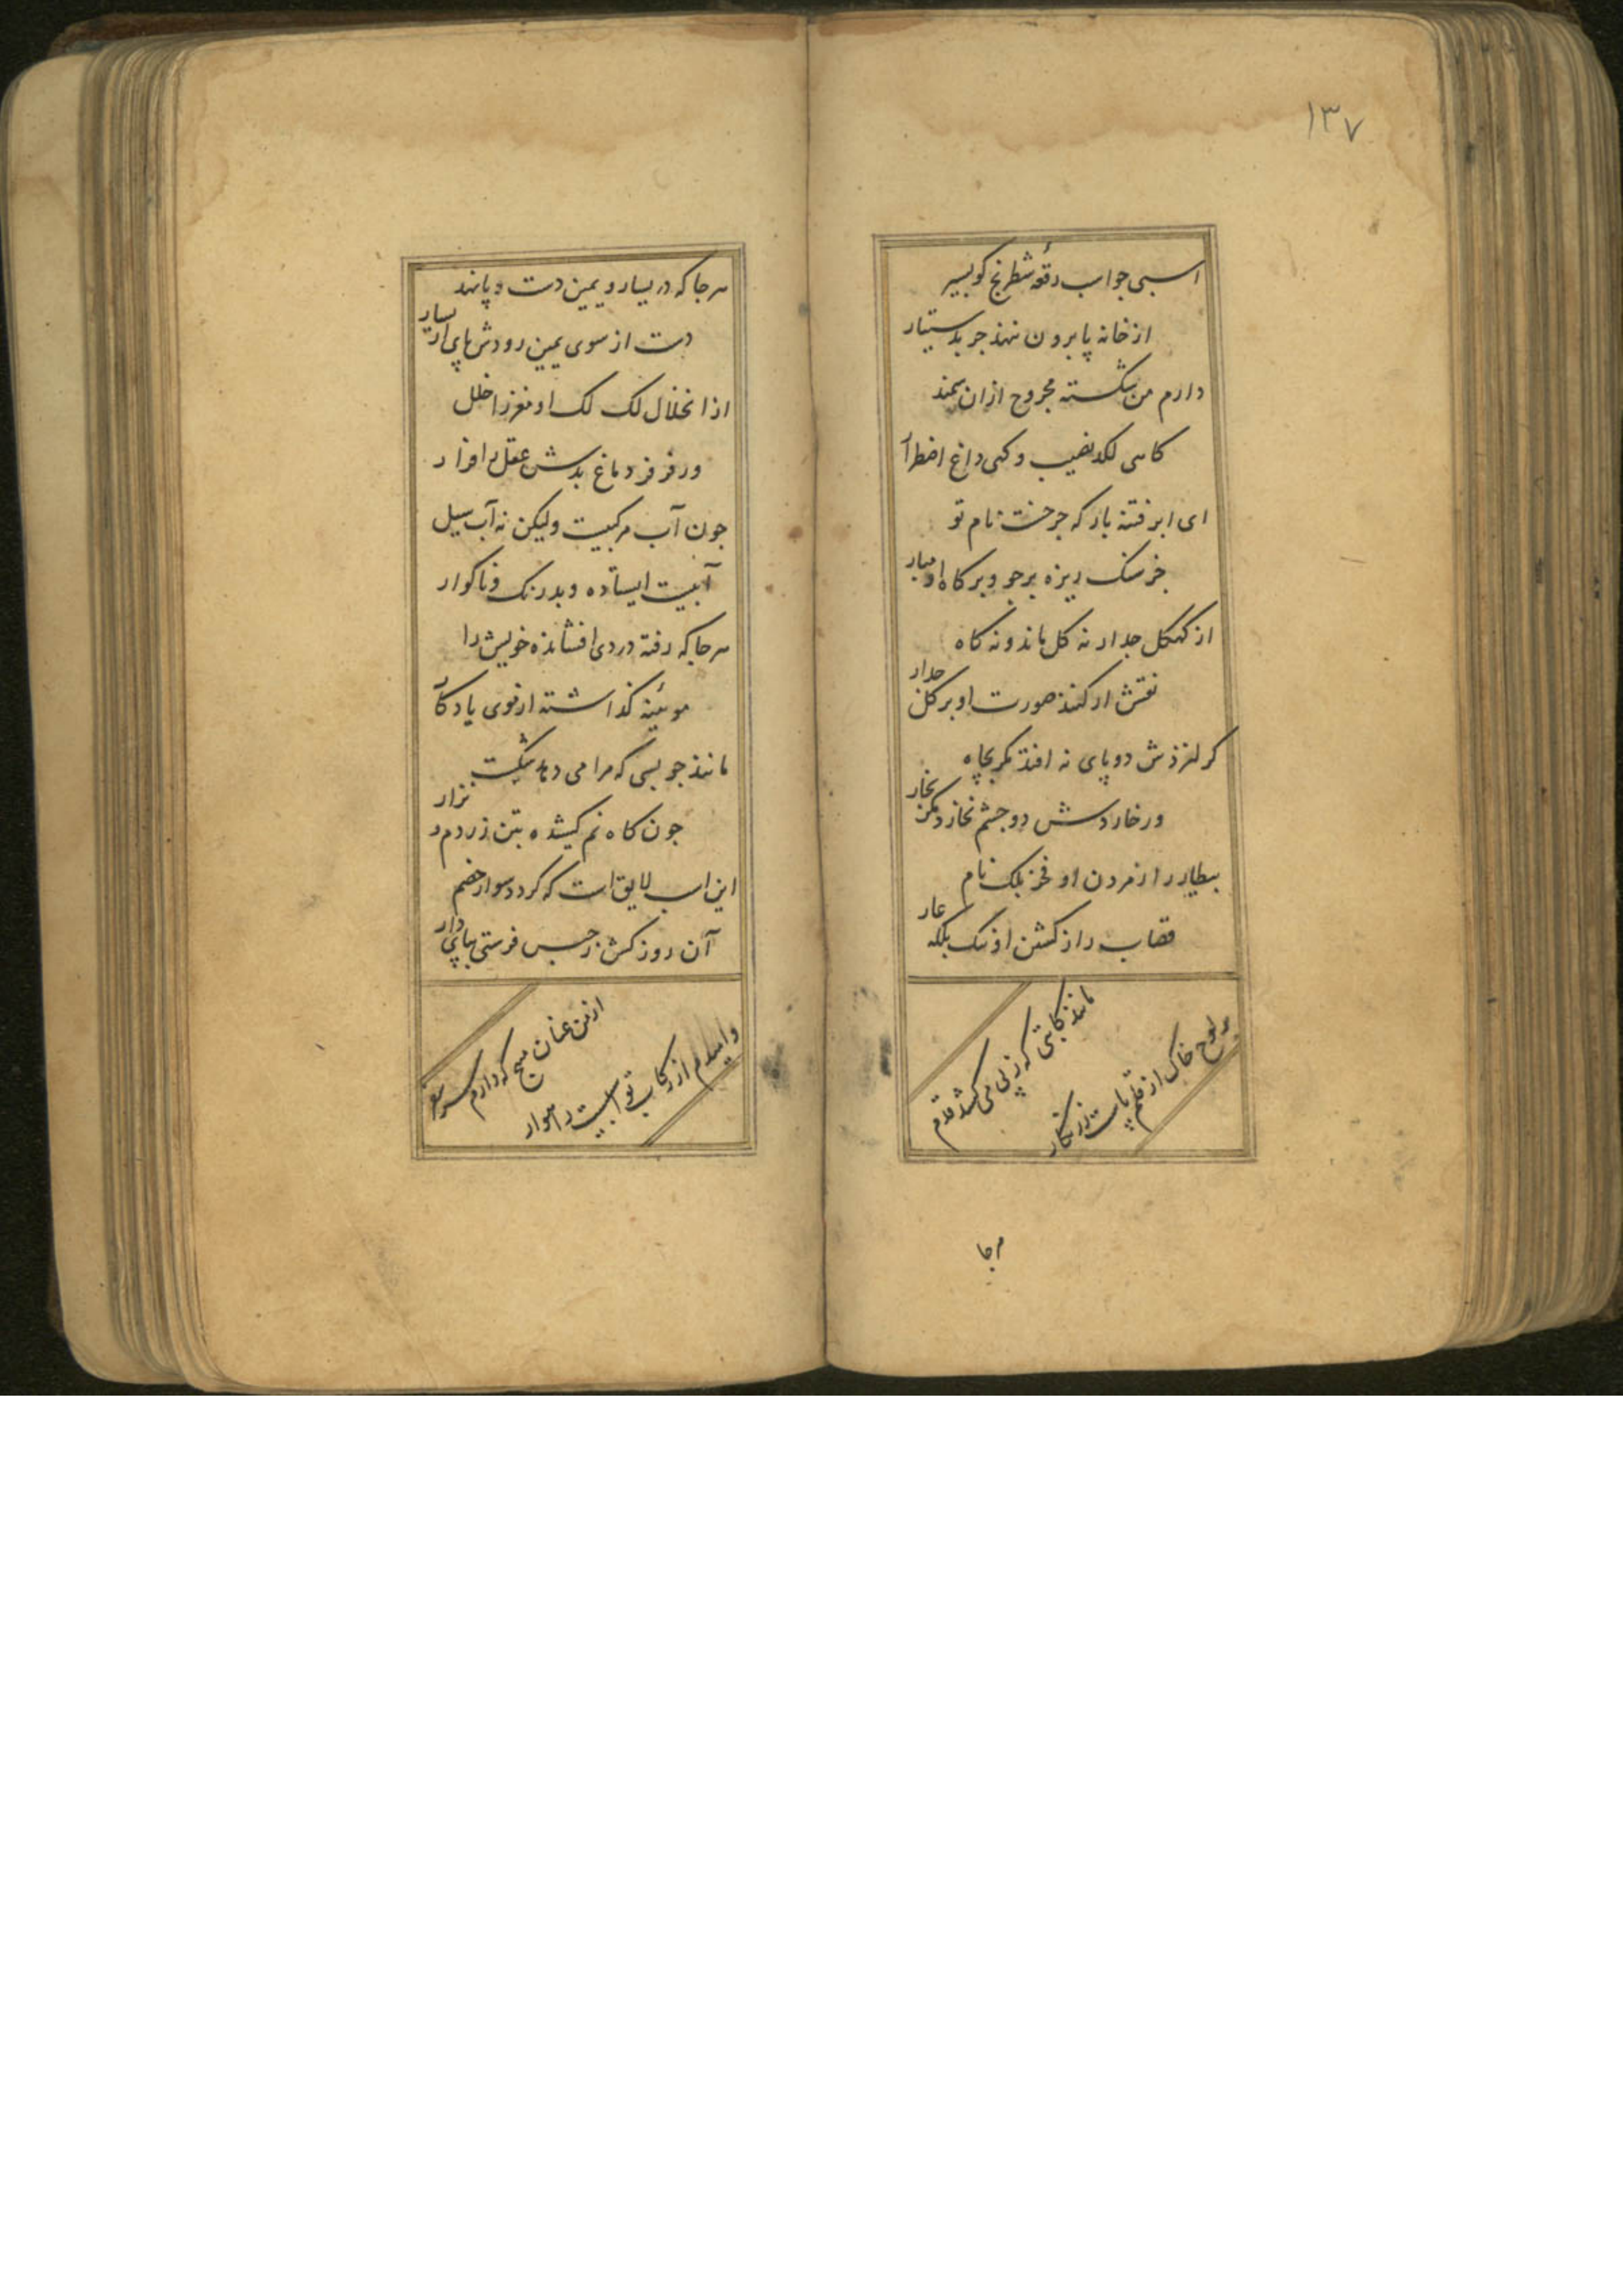 ۱۳۷
اسبی جواب رقعهٔ شطرنج کو بسیر
از خانه پا برون ننهد جز بدستیار
دارم من شکسته مجروح ازان سمند
کاهی لکد نصیب و کهی داغ اضطرار
ای ابر فتنه بار که جز خشت نام تو
خر سنک ریزه بر جو و بر کاه او مبار
از کهکل جدار نه کل ماند و نه کاه
نقش ار کنند صورت او بر کل جدار
کر لنزذش دو پای نه افتد مکر بچاه
ور خاردش دو چشم نخارد مکر بخار
بیطار را ز مردن او فخر بلک نام
قصاب را ز کشتن او ننک بلکه عار
مانند کاتبی که ز پی می کشد قدم
بر لوح خاک از قلم پاست زر نکار
هر جا
هر جا که در یسار و یمین دست و پا نهد
دست از سوی یمین رودش پای از یسار
از انخلال لک لک او مغز را خلل
ور فرفر دماغ بدش عقل را فزار
جون آب مرکبیت ولیکن نه آب سیل
آبیت ایستاده و بدرنک و ناکوار
هر جا که رفته در دی افشانده خویش را
موئینه کذاشته از موی یادکار
مانند جو بسی که مرا می دهد شکست
جون کاه نم کشیده بتن زرد و نزار
این اسب لایق است که کردد سوار خصم
آن روز کش ز حبس فرستی بپای دار
از من عنان مپیچ که دارم سر سفر
وامیدم از رکاب تو اسبیت راهوار